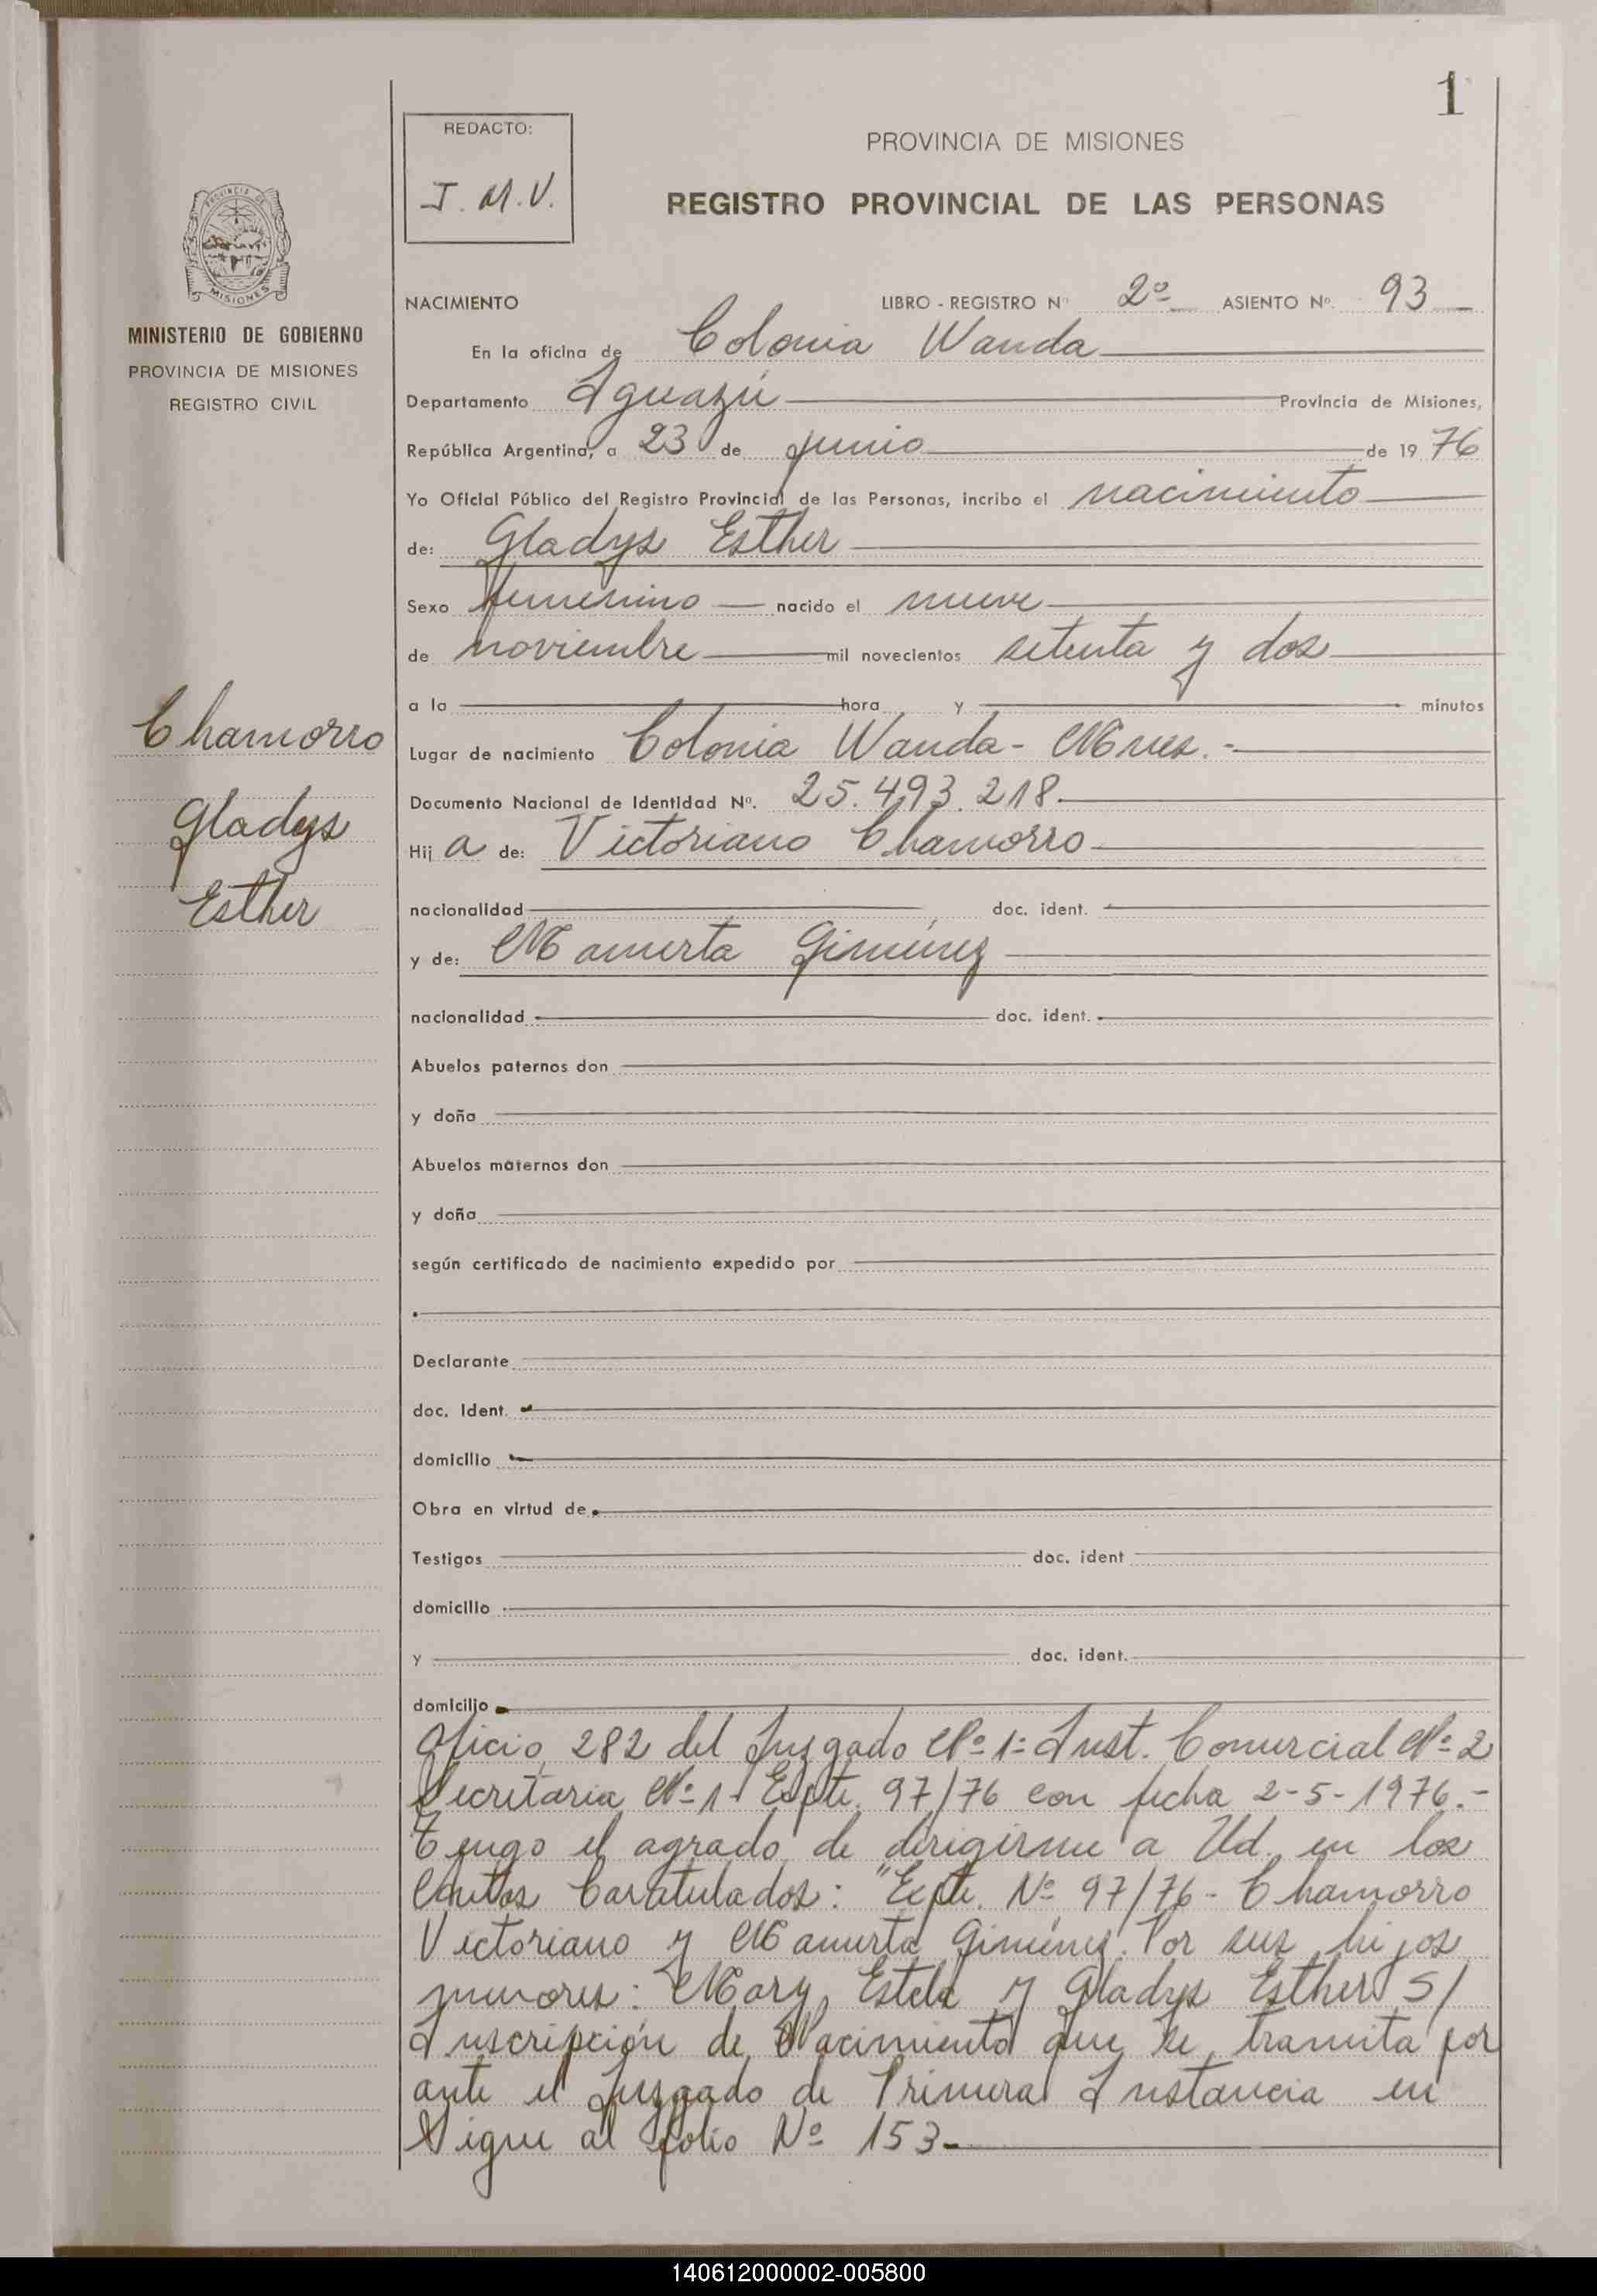 1
REDACTO:
J. M. V.
PROVINCIA DE MISIONES
REGISTRO PROVINCIAL DE LAS PERSONAS
PROVINCIA DE
MISIONES
MINISTERIO DE GOBIERNO
PROVINCIA DE MISIONES
REGISTRO CIVIL
NACIMIENTO LIBRO - REGISTRO Nº 2º ASIENTO Nº. 93
En la oficina de Colonia Wanda
Departamento Iguazú Provincia de Misiones,
República Argentina, a 23 de junio de 19 76
Yo Oficial Público del Registro Provincial de las Personas, incribo el nacimiento
de: Gladys Esther
Sexo femenino nacido el nueve
de noviembre mil novecientos setenta y dos
a la hora y minutos
Chamorro
Gladys
Esther
Lugar de nacimiento Colonia Wanda - Mnes.-
Documento Nacional de Identidad Nº. 25.493.218.
Hij a de: Victoriano Chamorro
nacionalidad doc. ident.
y de: Mamerta Giménez
nacionalidad doc. ident.
Abuelos paternos don
y doña
Abuelos maternos don
y doña
según certificado de nacimiento expedido por
Declarante
doc. Ident.
domicilio
Obra en virtud de
Testigos doc. ident
domicilio
y doc. ident.
domicilio
Oficio 282 del Juzgado Nº 1º Inst. Comercial Nº 2
Secretaria Nº 1 Expte. 97/76 con fecha 2-5-1976.-
Tengo el agrado de dirigirme a Ud. en los
Autos Caratulados: "Expte. Nº 97/76 - Chamorro
Victoriano y Mamerta Giménez. Por sus hijos
menores: Mary Estela y Gladys Esther S/
Inscripción de Nacimiento que se tramita por
ante el Juzgado de Primera Instancia en
Sigue al folio Nº 153-
140612000002-005800